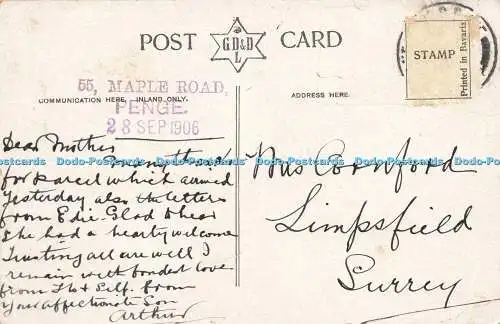 POST CARD
G.D.&D.
L
STAMP
Printed in Bavaria
55, MAPLE ROAD,
PENGE.
28 SEP 1906
COMMUNICATION HERE, INLAND ONLY.
ADDRESS HERE.
Dear Mother
Many thanks
for parcel which arrived
yesterday also the letters
from Edie. Glad to hear
she had a hearty welcome
Trusting all are well I
remain with fondest love
from Flo & Self. from
Your affectionate Son
Arthur
Mrs Cornford
Limpsfield
Surrey
Dodo-Postcards Dodo-Postcards Dodo-Postcards Dodo-Postcards Dodo-Postcards